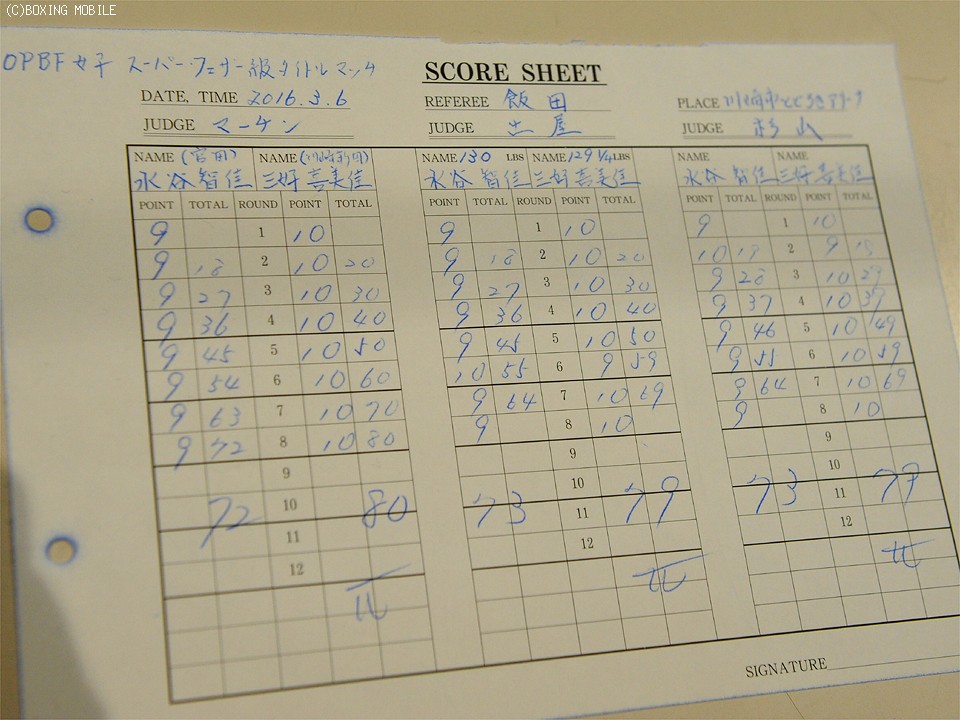 (C)BOXING MOBILE
OPBF女子 スーパーフェザー級タイトルマッチ
SCORE SHEET
DATE, TIME 2016.3.6 REFEREE 飯田 PLACE 川崎市とどろきアリーナ
JUDGE マーチン JUDGE 土屋 JUDGE 杉山
NAME (宮田) NAME (川崎新田) NAME 130 LBS NAME 129 1/4 LBS NAME NAME
水谷智佳 三好喜美佳 水谷智佳 三好喜美佳 水谷智佳 三好喜美佳
POINT TOTAL ROUND POINT TOTAL POINT TOTAL ROUND POINT TOTAL POINT TOTAL ROUND POINT TOTAL
9 1 10 9 1 10 9 1 10
9 18 2 10 20 9 18 2 10 20 10 19 2 9 19
9 27 3 10 30 9 27 3 10 30 9 28 3 10 29
9 36 4 10 40 9 36 4 10 40 9 37 4 10 39
9 45 5 10 50 9 45 5 10 50 9 46 5 10 49
9 54 6 10 60 10 55 6 9 59 9 55 6 10 59
9 63 7 10 70 9 64 7 10 69 9 64 7 10 69
9 72 8 10 80 9 8 10 9 8 10
9 9 9
72 10 80 10 10
11 73 11 79 73 11 79
12 12 12
SIGNATURE